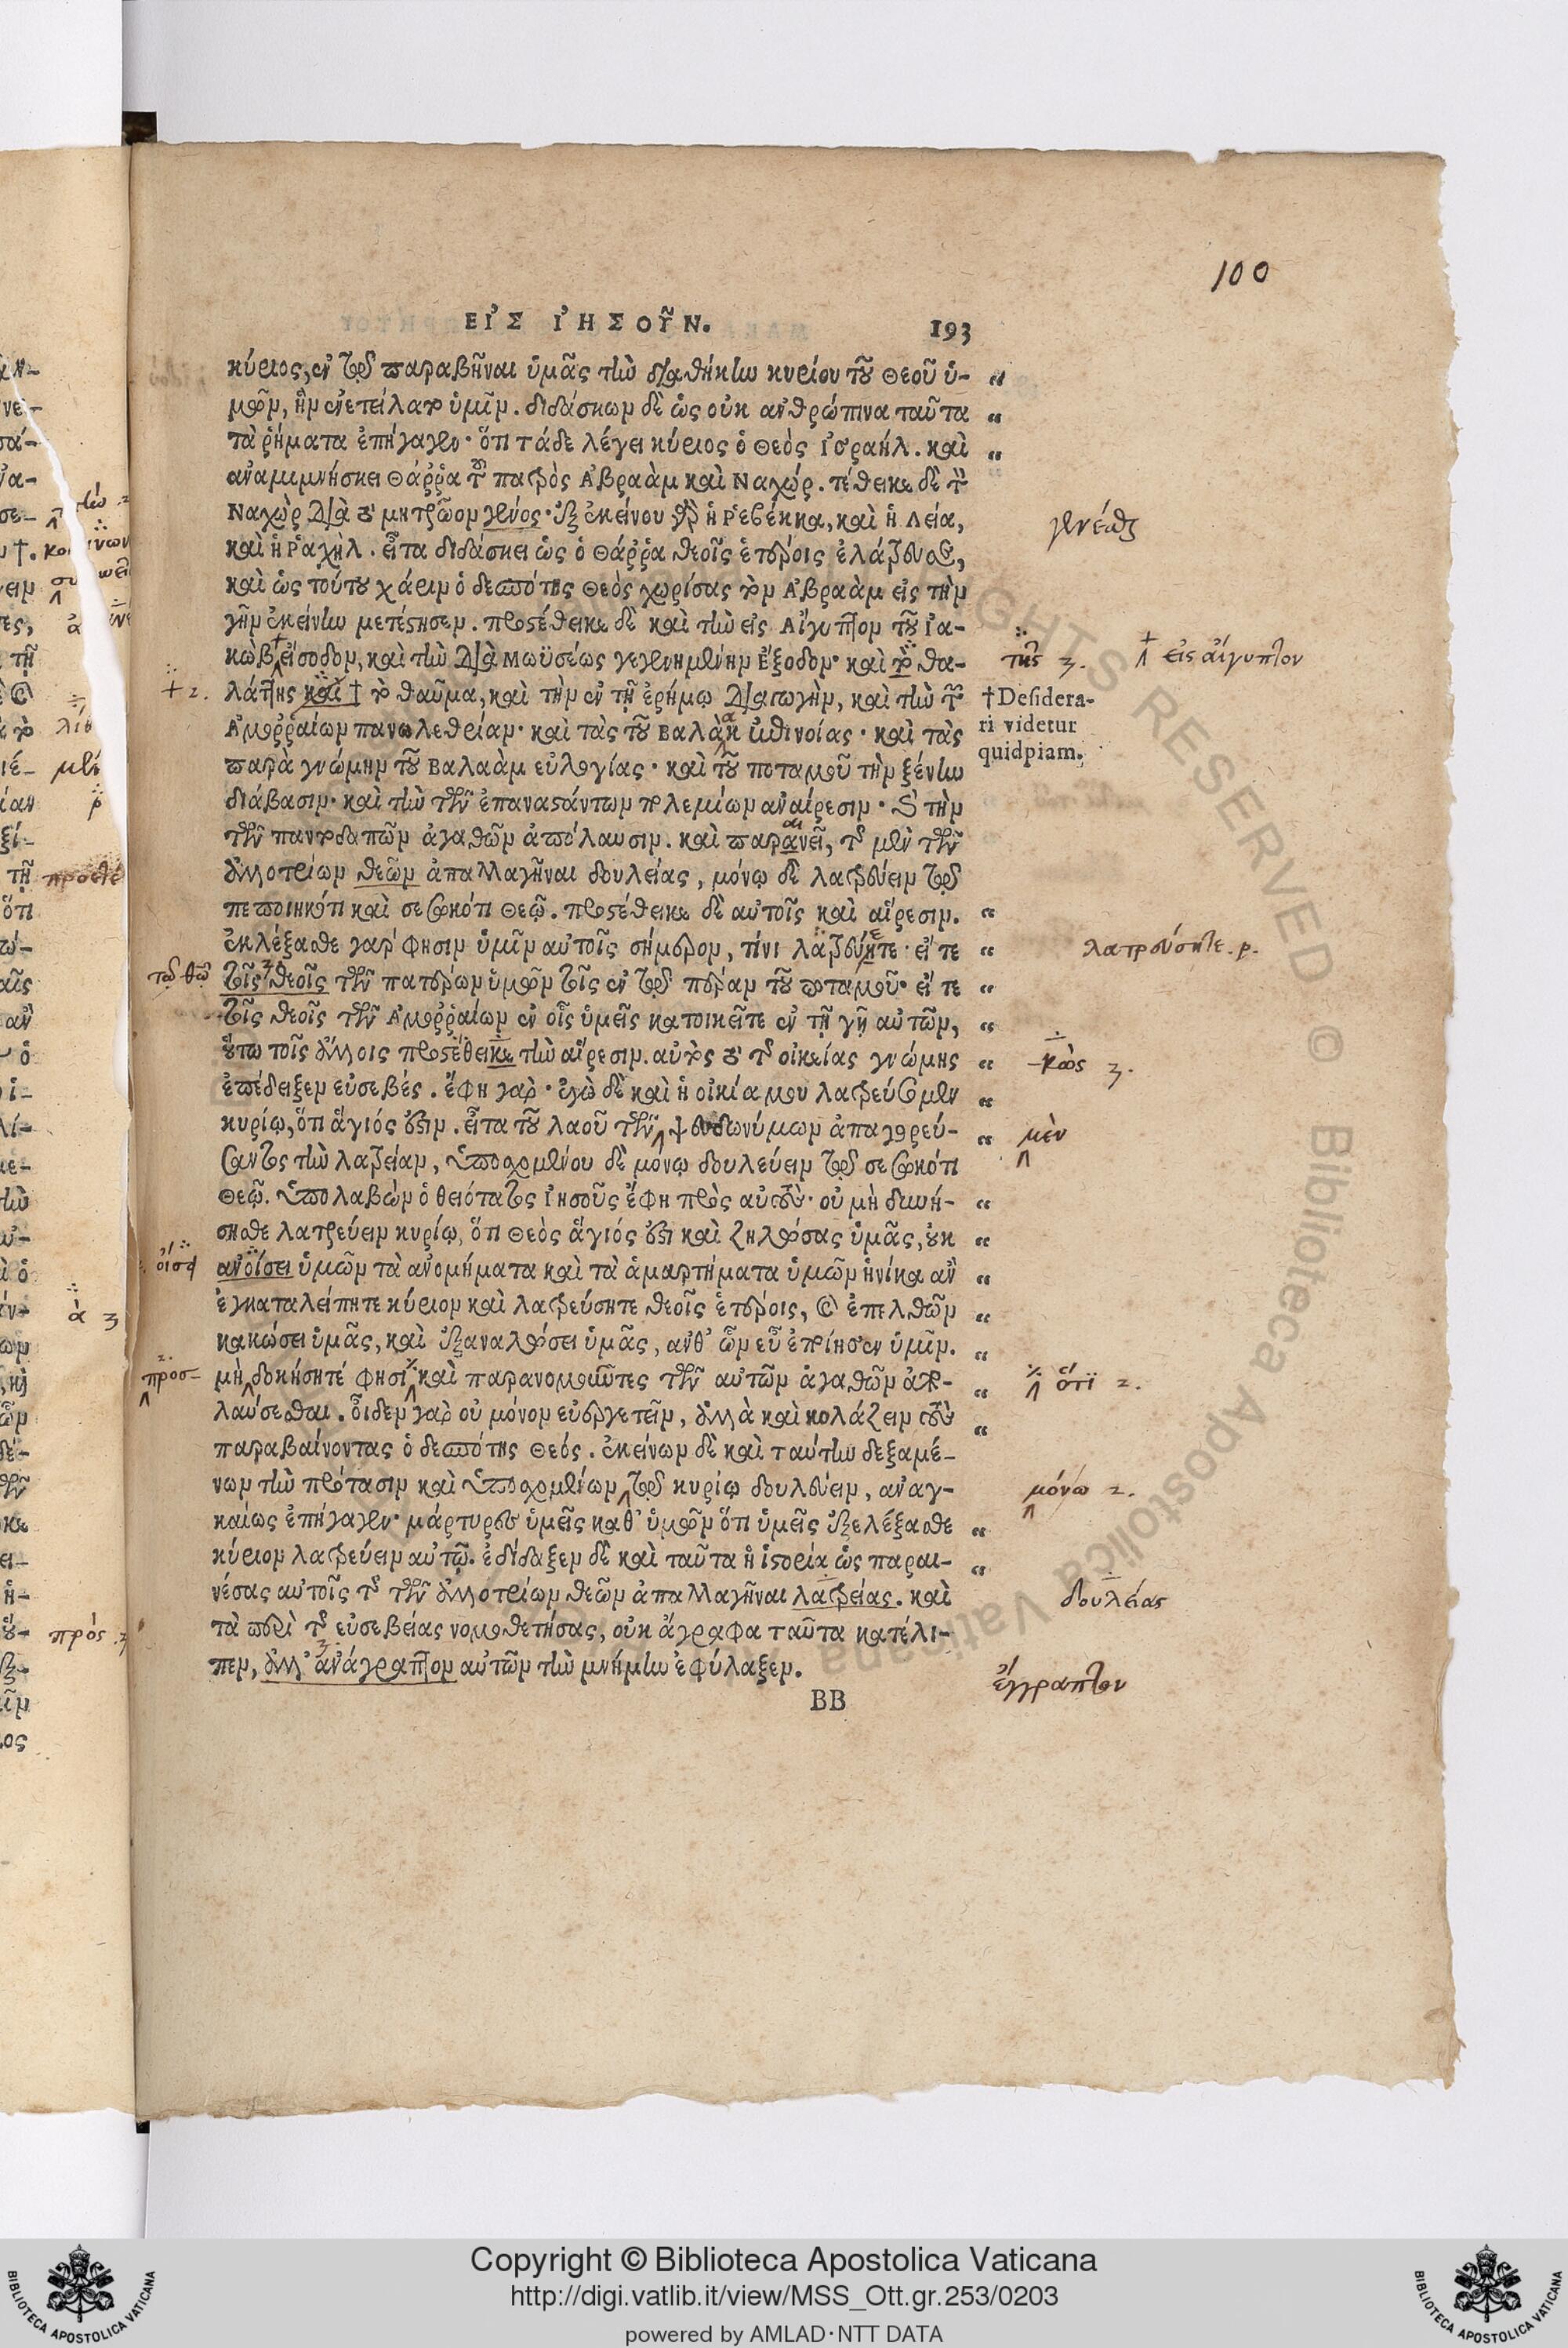 100
ΕΙ᾿Σ Ἰ᾿ΗΣΟΥ͂Ν. 193
κύριος, ἐν τῷ παραβῆναι ὑμᾶς τὴν διαθήκην κυρίου τοῦ Θεοῦ ὑ- “
μῶν, ἣν ἐνετείλατο ὑμῖν. διδάσκων δὲ ὡς οὐκ ἀνθρώπινα ταῦτα “
τὰ ῥήματα ἐπήγαγεν· ὅτι τάδε λέγει κύριος ὁ Θεὸς Ἰσραήλ. καὶ “
ἀναμιμνήσκει Θάῤῥα τοῦ πατρὸς Ἀβραὰμ καὶ Ναχώρ. τέθεικε δὲ τὸν
Ναχὼρ διὰ τὸ μητρῷον γένος· ἐξ ἐκείνου γὰρ ἡ Ῥεβέκκα, καὶ ἡ Λεία,
γενέας
καὶ ἡ Ῥαχὴλ. εἶτα διδάσκει ὡς ὁ Θάῤῥα θεοῖς ἑτέροις ἐλάτρευσε,
καὶ ὡς τούτου χάριν ὁ δεσπότης Θεὸς χωρίσας τὸν Ἀβραὰμ εἰς τὴν
γῆν ἐκείνην μετέστησεν. προστέθεικε δὲ καὶ τὴν εἰς Αἴγυπτον τοῦ Ἰα-
κὼβ εἴσοδον, καὶ τὴν διὰ Μωϋσέως γεγενημένην Ἔξοδον· καὶ τὸ θα-
τῆς 3. εἰς αἴγυπτον
+ 2. λάττης καὶ † τὸ θαῦμα, καὶ τὴν ἐν τῇ ἐρήμῳ διαγωγὴν, καὶ τὴν τῶν
† Desidera-
ri videtur
quidpiam.
Ἀμοῤῥαίων πανωλεθρίαν· καὶ τὰς τοῦ Βαλὰκ ἐπινοίας· καὶ τὰς
παρὰ γνώμην τοῦ Βαλαὰμ εὐλογίας· καὶ τοῦ ποταμοῦ τὴν ξένην
διάβασιν· καὶ τὴν τῶν ἐπαναστάντων πολεμίων ἀναίρεσιν· καὶ τὴν
τῶν παντοδαπῶν ἀγαθῶν ἀπόλαυσιν. καὶ παρανεῖ, τῆς μὲν τῶν
ἀλλοτρίων θεῶν ἀπαλλαγῆναι δουλείας, μόνῳ δὲ λατρεύειν τῷ
πεποιηκότι καὶ σεσωκότι Θεῷ. προστέθεικε δὲ αὐτοῖς καὶ αἵρεσιν. “
ἐκλέξασθε γάρ φησιν ὑμῖν αὐτοῖς σήμερον, τίνι λατρεύητε· εἴ τε “
λατρεύσητε. ρ.
τῷ θῶ
τοῖς θεοῖς τῶν πατέρων ὑμῶν τοῖς ἐν τῷ πέραν τοῦ ποταμοῦ· εἴ τε “
τοῖς θεοῖς τῶν Ἀμοῤῥαίων ἐν οἷς ὑμεῖς κατοικεῖτε ἐν τῇ γῇ αὐτῶν, “
οὕτω τοῖς ἄλλοις προστέθεικε τὴν αἵρεσιν. αὐτὸς τὸ τῆς οἰκείας γνώμης “
-κὼς 3.
ἐπέδειξεν εὐσεβές. ἔφη γάρ· ἐγὼ δὲ καὶ ἡ οἰκία μου λατρεύσομεν “
κυρίῳ, ὅτι ἅγιός ἐστιν. εἶτα τοῦ λαοῦ τῶν ψευδωνύμων ἀπαγορεύ- “
μὲν
σαντος τὴν λατρείαν, ὑποσχομένου δὲ μόνῳ δουλεύειν τῷ σεσωκότι
Θεῷ. ὑπολαβὼν ὁ θειότατος Ἰησοῦς ἔφη πρὸς αὐτούς· οὐ μὴ δυνή- “
σησθε λατρεύειν κυρίῳ, ὅτι Θεὸς ἅγιός ἐστι καὶ ζηλώσας ὑμᾶς, οὐκ “
οἴσει
ἀνοίσει ὑμῶν τὰ ἀνομήματα καὶ τὰ ἁμαρτήματα ὑμῶν ἡνίκα ἂν “
ἐγκαταλείπητε κύριον καὶ λατρεύσητε θεοῖς ἑτέροις, καὶ ἐπελθὼν “
κακώσει ὑμᾶς, καὶ ἐξαναλώσει ὑμᾶς, ἀνθ' ὧν εὖ ἐποίησεν ὑμῖν. “
προσ- 2.
μὴ δοκήσητέ φησι καὶ παρανομοῦντες τῶν αὐτῶν ἀγαθῶν ἀπο- “
ὅτι 2.
λαύσεσθαι. οἶδεν γὰρ οὐ μόνον εὐεργετεῖν, ἀλλὰ καὶ κολάζειν τοὺς “
παραβαίνοντας ὁ δεσπότης Θεός. ἐκείνων δὲ καὶ ταύτην δεξαμέ-
νων τὴν πρότασιν καὶ ὑποσχομένων τῷ κυρίῳ δουλεύειν, ἀναγ-
μόνω 2.
καίως ἐπήγαγεν· μάρτυρες ὑμεῖς καθ' ὑμῶν ὅτι ὑμεῖς ἐξελέξασθε “
κύριον λατρεύειν αὐτῷ. ἐδίδαξεν δὲ καὶ ταῦτα ἡ ἱστορία ὡς παραι- “
νέσας αὐτοῖς τῆς τῶν ἀλλοτρίων θεῶν ἀπαλλαγῆναι λατρείας. καὶ
δουλείας
τὰ περὶ τῆς εὐσεβείας νομοθετήσας, οὐκ ἄγραφα ταῦτα κατέλι-
πεν, ἀλλ' ἀνάγραπτον αὐτῶν τὴν μνήμην ἐφύλαξεν.
ἔγγραπτον
BB
προσθε
ἀ 3
πρὸς 3
Copyright © Biblioteca Apostolica Vaticana
http://digi.vatlib.it/view/MSS_Ott.gr.253/0203
powered by AMLAD·NTT DATA
BIBLIOTECA APOSTOLICA VATICANA
BIBLIOTECA APOSTOLICA VATICANA